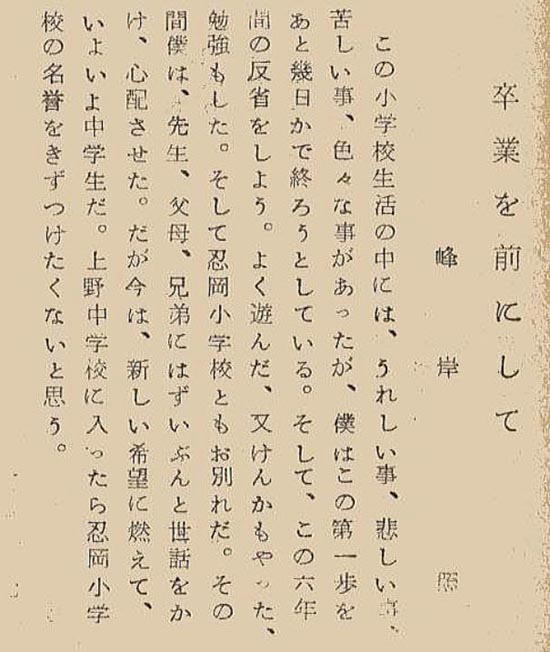 卒業を前にして
峰岸照
この小学校生活の中には、うれしい事、悲しい事、
苦しい事、色々な事があったが、僕はこの第一歩を
あと幾日かで終ろうとしている。そして、この六年
間の反省をしよう。よく遊んだ、又けんかもやった、
勉強もした。そして忍岡小学校ともお別れだ。その
間僕は、先生、父母、兄弟にはずいぶんと世話をか
け、心配させた。だが今は、新しい希望に燃えて、
いよいよ中学生だ。上野中学校に入ったら忍岡小学
校の名誉をきずつけたくないと思う。